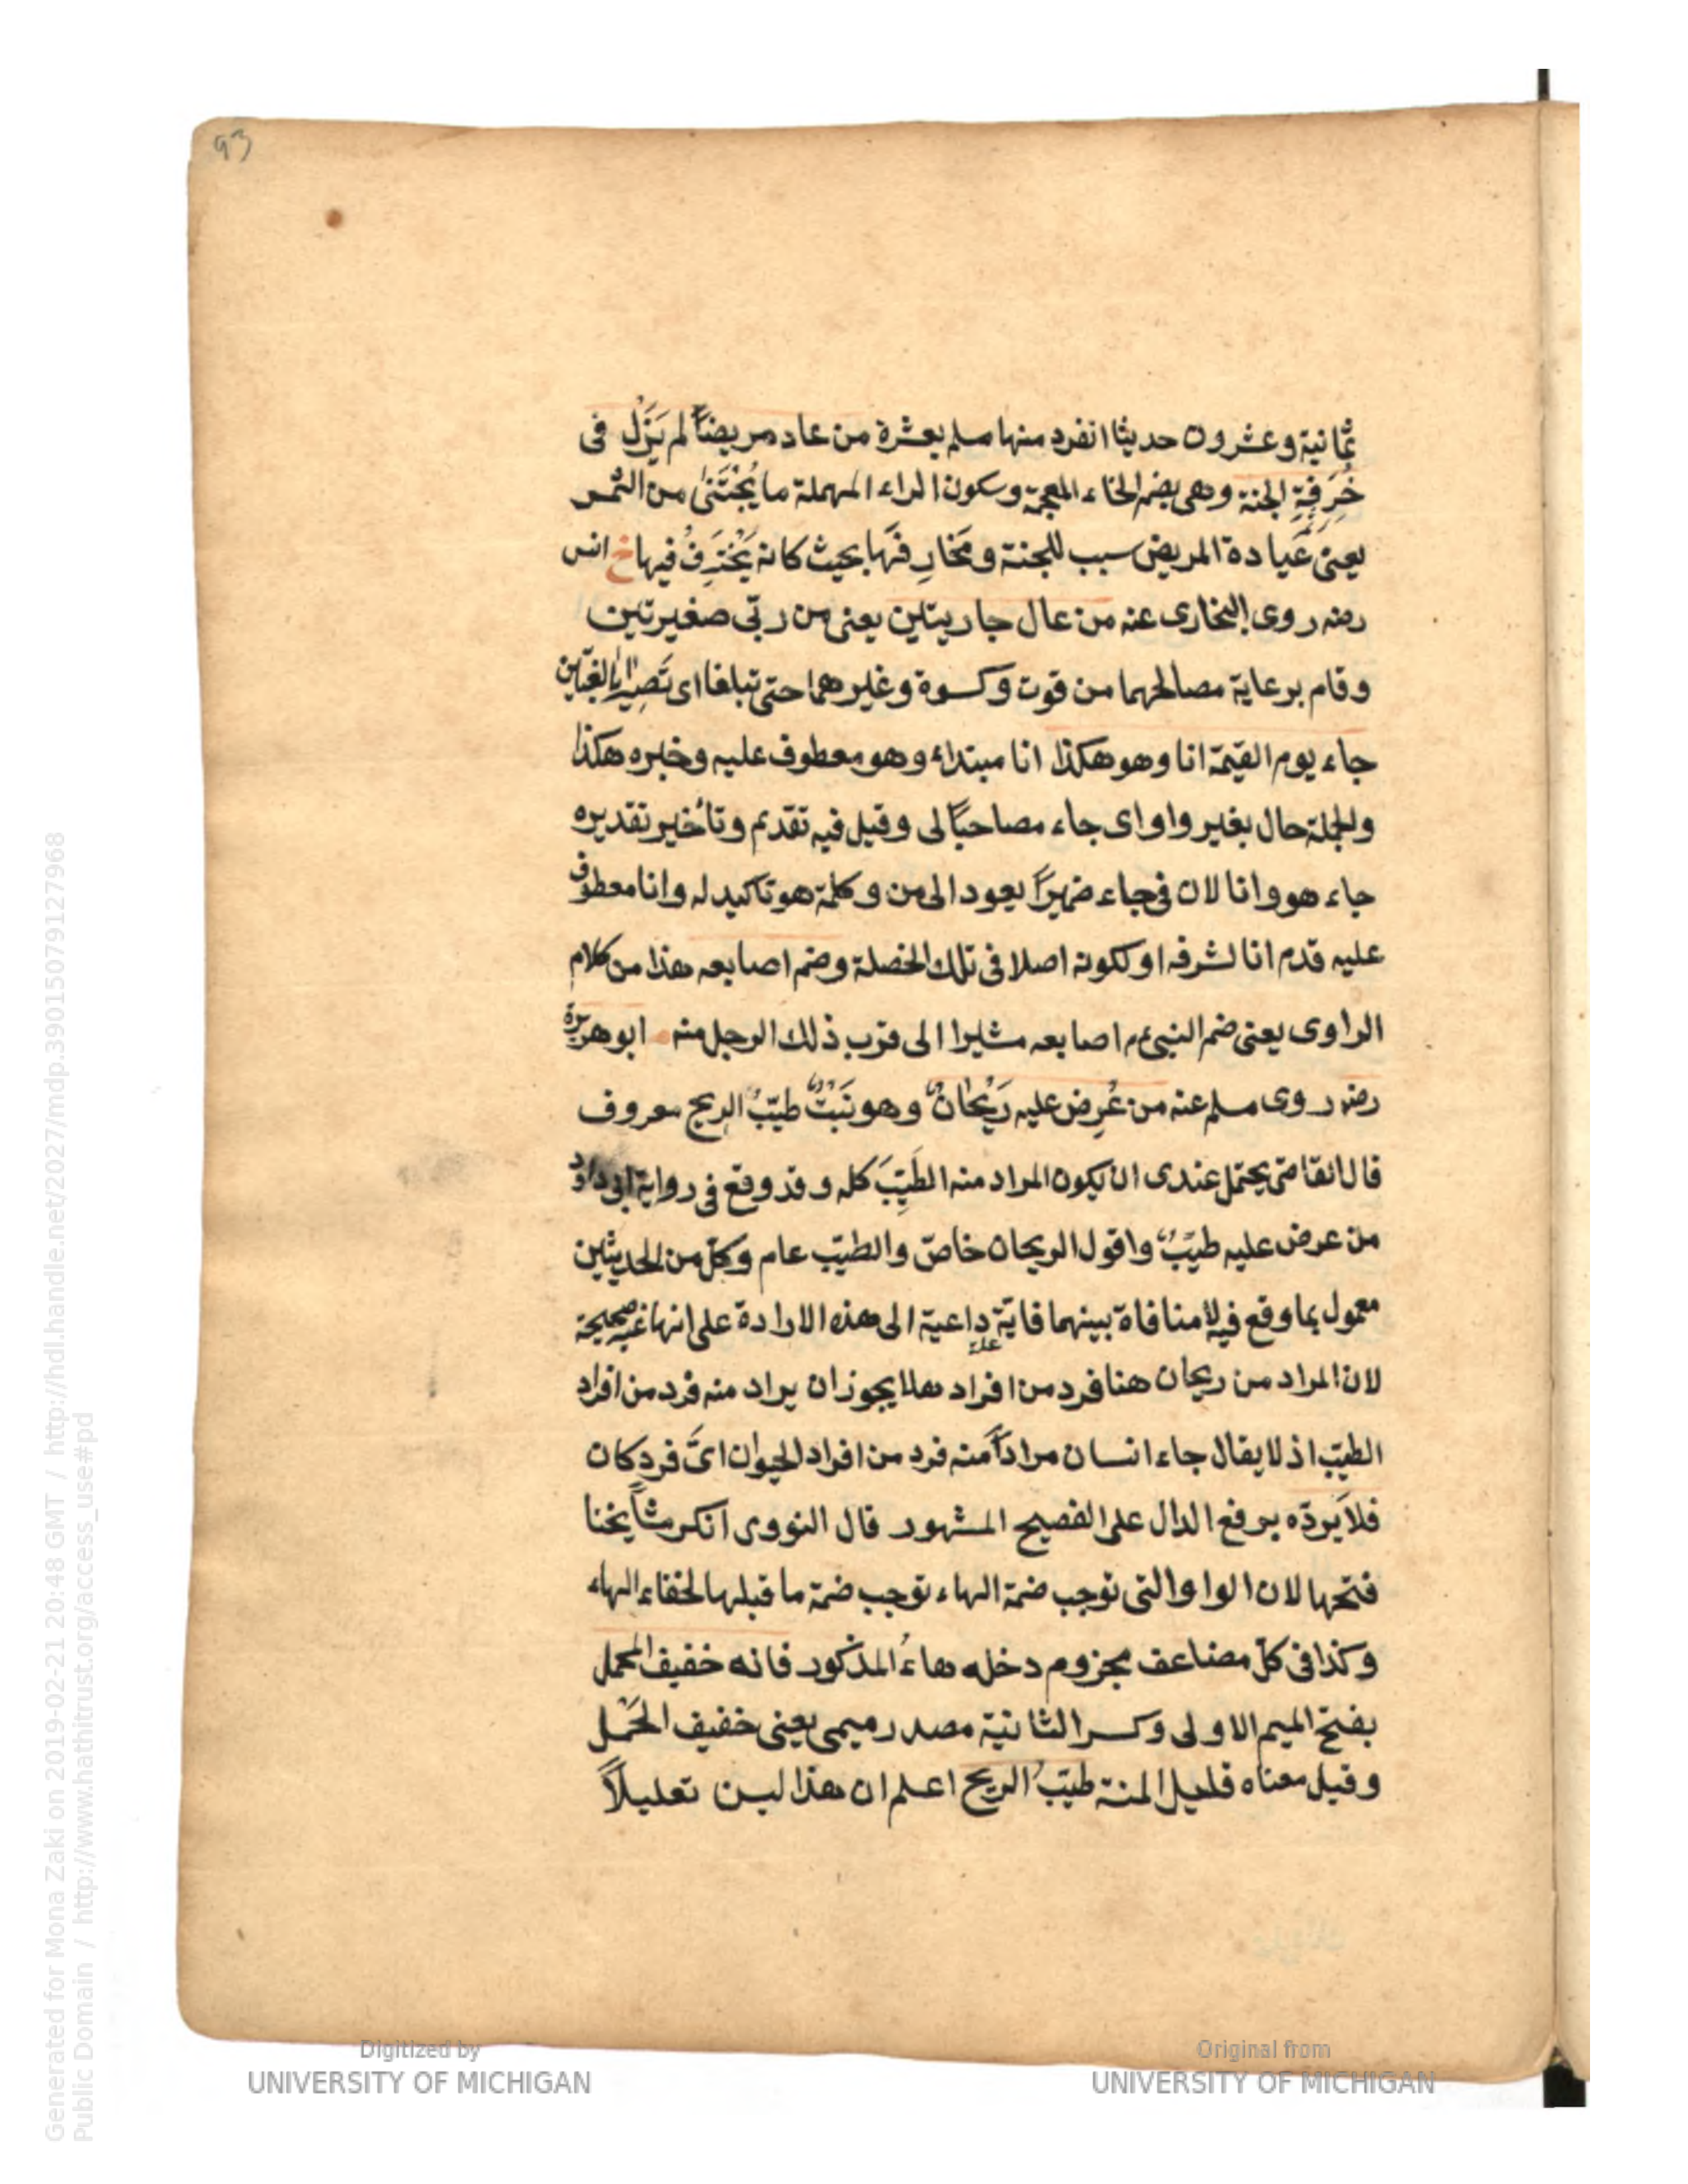 93
ثمانية وعشرون حديثا انفرد منها مسلم بعشرة من عاد مريضاً لم يَزَلْ فى
خُرْفَةِ الجنة وهى بضم الخاء المعجمة وسكون الراء المهملة ما يُجْتَنىٰ من الثمر
يعنى عيادة المريض سبب للجنة ومَخارِفها بحيث كانه يَخْتَرِفُ فيها خ انس
رضه روى البخارى عنه من عال جاريتين يعنى من ربّى صغيرتين
وقام برعاية مصالحهما من قوت وكسوة وغيرهما حتى تبلغا اى تَصِيرا بالغتين
جاء يوم القيمة انا وهو هكذا انا مبتداء وهو معطوف عليه وخبره هكذا
والجملة حال بغير واو اى جاء مصاحباً لى وقيل فيه تقديم وتأخير تقديره
جاء هو وانا لان فى جاء ضميراً يعود الى من وكلمة هو تاكيد له وانا معطوف
عليه قدم انا لشرفه او لكونه اصلا فى تلك الخصلة وضم اصابعه هذا من كلام
الراوى يعنى ضم النبى ء م اصابعه مشيرا الى قرب ذلك الرجل منه ابو هريرة
رضه روى مسلم عنه من عُرِض عليه رَيْحانٌ وهو نَبْتٌ طيّبُ الريح معروف
قال القاضى يحتمل عندى ان يكون المراد منه الطَيّبَ كله وقد وقع فى رواية ابى داود
من عرض عليه طيّبٌ واقول الريحان خاصّ والطيّب عام وكلّ من الحديثين
معمول بما وقع فيه لا منافاة بينهما فاية داعية الى هذه الارادة على انها غير صحيحة
علة
لان المراد من ريحان هنا فرد من افراده فلا يجوز ان يراد منه فرد من افراد
الطيّب اذ لا يقال جاء انسان مراداً منه فرد من افراد الحيوان اىّ فرد كان
فلا يَردّه برفع الدال على الفصيح المشهور قال النووى انكر مشايخنا
فتحها لان الواو التى توجب ضمة الهاء توجب ضمة ما قبلها لخفاء الهاء
وكذا فى كلّ مضاعف مجزوم دخله هاءُ المذكور فانه خفيف المحمل
بفتح الميم الاولى وكسر الثانية مصدر ميمى يعنى خفيف الحَمْل
وقيل معناه قليل المنة طيّبُ الريح اعلم ان هذا ليس تعليلاً
Digitized by
UNIVERSITY OF MICHIGAN
Original from
UNIVERSITY OF MICHIGAN
Generated for Mona Zaki on 2019-02-21 20:48 GMT / http://hdl.handle.net/2027/mdp.39015079127968
Public Domain / http://www.hathitrust.org/access_use#pd